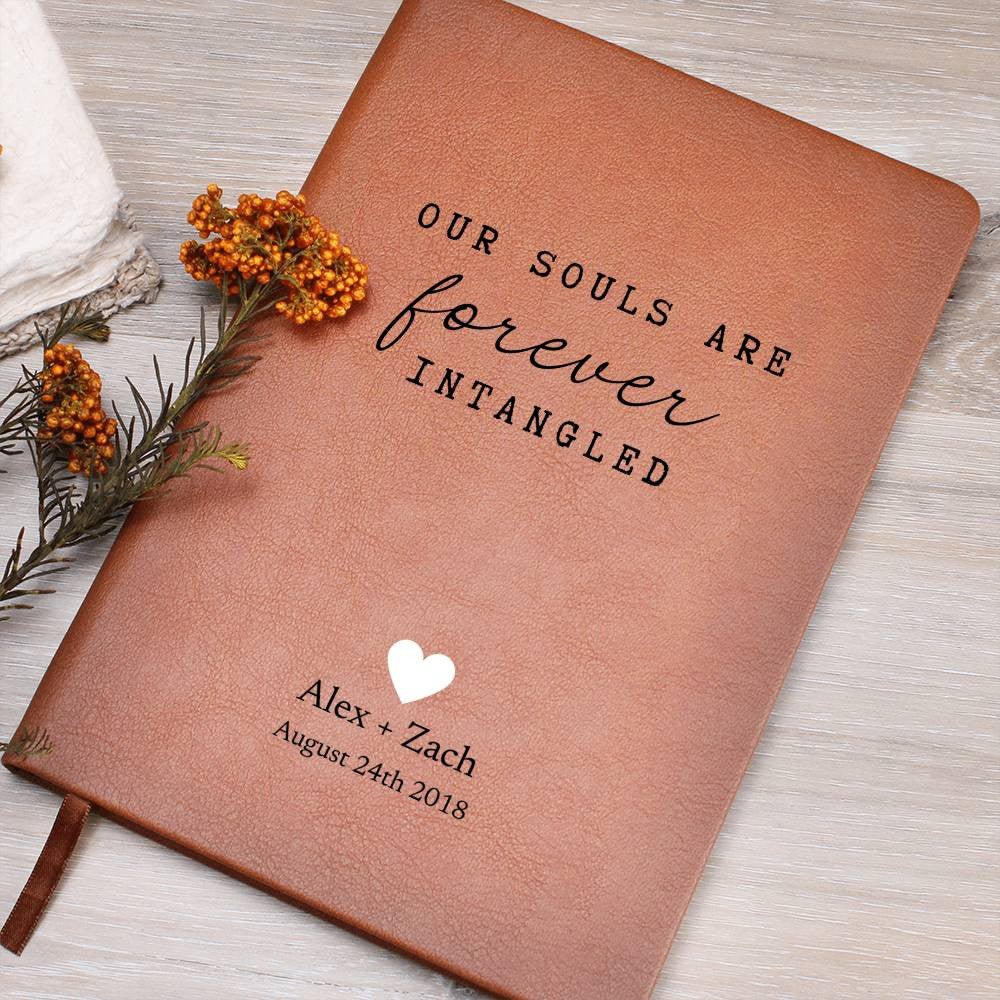 OUR SOULS ARE
forever
INTANGLED
Alex + Zach
August 24th 2018